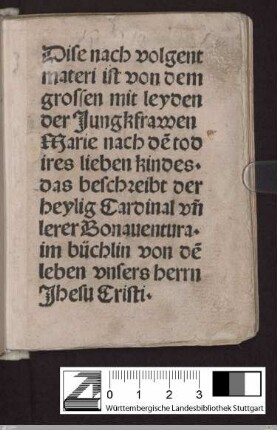 Dise nach volgent
materi ist von dem
grossen mit leyden
der Jungkfrawen
Marie nach dē tod
ires lieben kindes·
das beschreibt der
heylig Cardinal vñ
lerer Bonauentura·
im büchlin von dē
leben vnsers herrn
Jhesu Cristi·
0 1 2 3
Württembergische Landesbibliothek Stuttgart